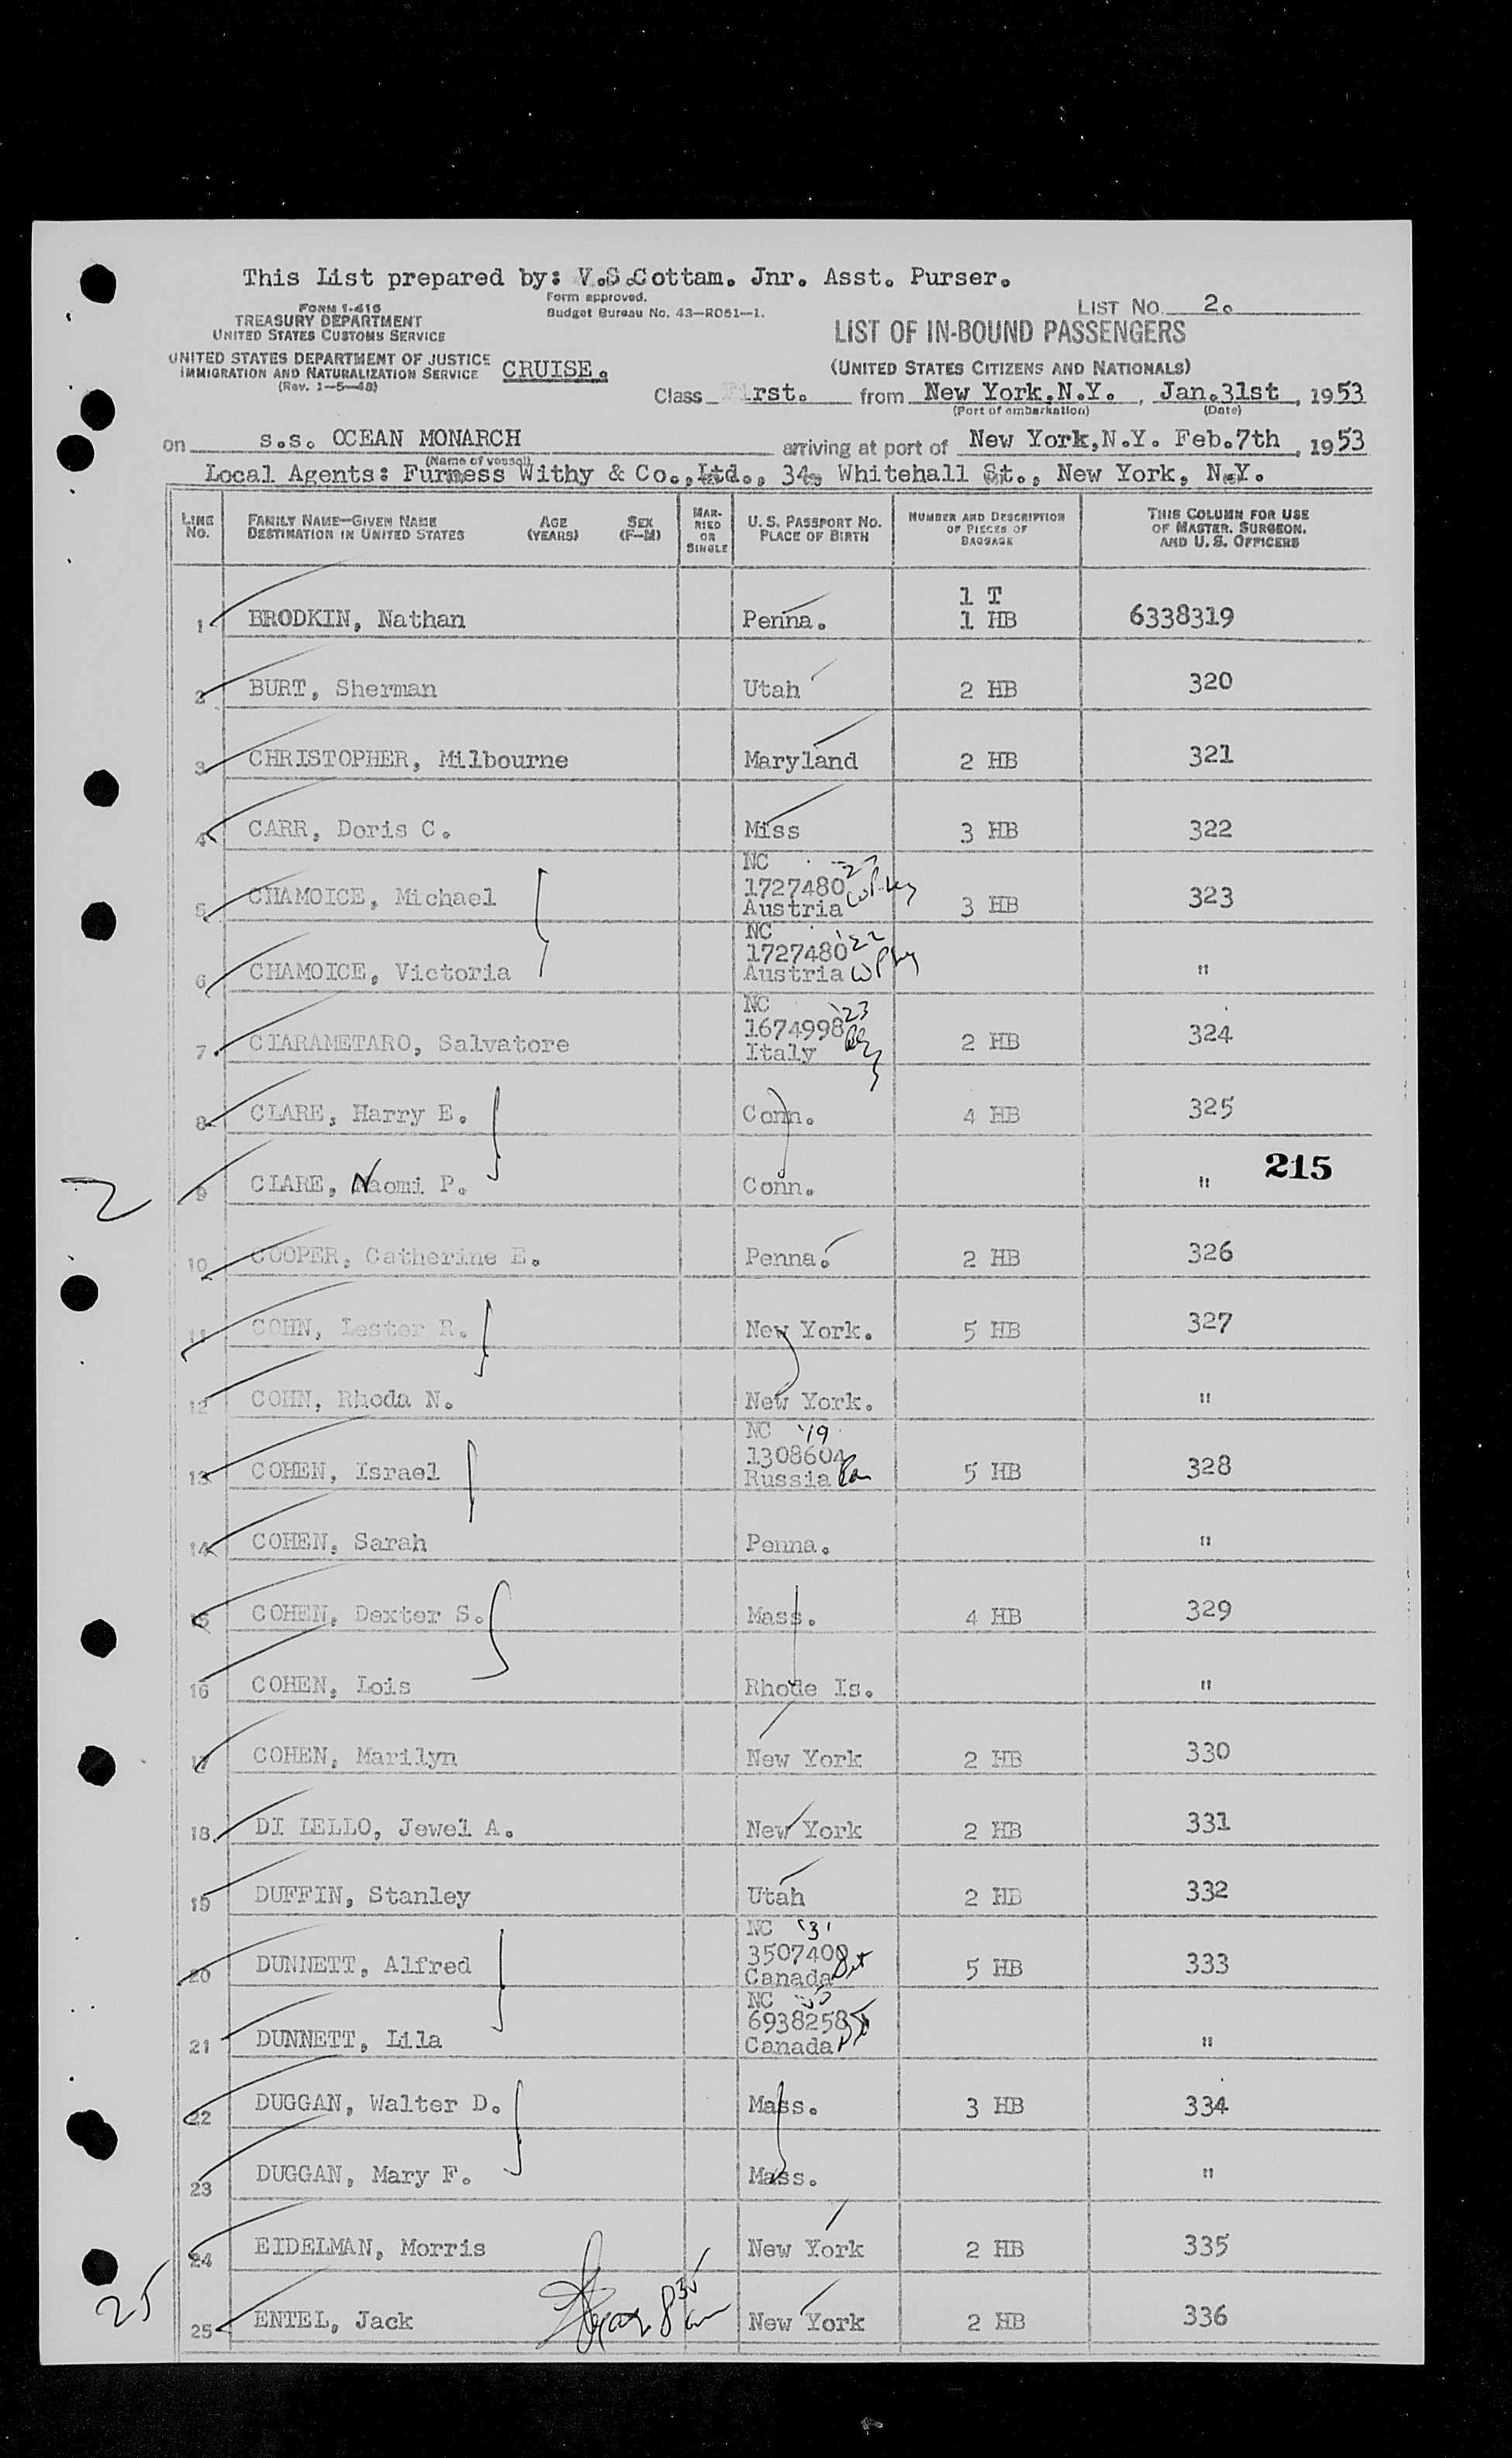 This List prepared by: V.S.Cottam. Jnr. Asst. Purser.
FORM I-416
TREASURY DEPARTMENT
UNITED STATES CUSTOMS SERVICE
Form approved.
Budget Bureau No. 43—R051—1.
LIST NO. 2.
LIST OF IN-BOUND PASSENGERS
UNITED STATES DEPARTMENT OF JUSTICE
IMMIGRATION AND NATURALIZATION SERVICE
(Rev. 1—5—48)
CRUISE.
(UNITED STATES CITIZENS AND NATIONALS)
Class First. from New York,N.Y. , Jan.31st , 1953
(Port of embarkation) (Date)
on s.s. OCEAN MONARCH arriving at port of New York,N.Y. Feb.7th , 1953
(Name of vessel)
Local Agents: Furness Withy & Co.,Ltd., 34. Whitehall St., New York, N.Y.
LINE NO. FAMILY NAME—GIVEN NAME DESTINATION IN UNITED STATES AGE (YEARS) SEX (F—M) MARRIED OR SINGLE U. S. PASSPORT NO. PLACE OF BIRTH NUMBER AND DESCRIPTION OF PIECES OF BAGGAGE THIS COLUMN FOR USE OF MASTER, SURGEON, AND U. S. OFFICERS
1 T
1 BRODKIN, Nathan Penna. 1 HB 6338319
2 BURT, Sherman Utah 2 HB 320
3 CHRISTOPHER, Milbourne Maryland 2 HB 321
4 CARR, Doris C. Miss 3 HB 322
NC
1727480
5 CHAMOICE, Michael Austria 3 HB 323
NC '22
1727480
6 CHAMOICE, Victoria Austria "
NC '23
1674998
7 CIARAMETARO, Salvatore Italy 2 HB 324
8 CLARE, Harry E. Conn. 4 HB 325
215
2
9 CLARE, Naomi P. Conn. "
10 COOPER, Catherine E. Penna. 2 HB 326
11 COHN, Lester R. New York. 5 HB 327
12 COHN, Rhoda N. New York. "
NC '19
1308604
13 COHEN, Israel Russia 5 HB 328
14 COHEN, Sarah Penna. "
15 COHEN, Dexter S. Mass. 4 HB 329
16 COHEN, Lois Rhode Is. "
17 COHEN, Marilyn New York 2 HB 330
18 DI LELLO, Jewel A. New York 2 HB 331
19 DUFFIN, Stanley Utah 2 HB 332
NC '31
3507400
20 DUNNETT, Alfred Canada 5 HB 333
NC
6938258
21 DUNNETT, Lila Canada "
22 DUGGAN, Walter D. Mass. 3 HB 334
23 DUGGAN, Mary F. Mass. "
24 EIDELMAN, Morris New York 2 HB 335
25
25 ENTEL, Jack New York 2 HB 336